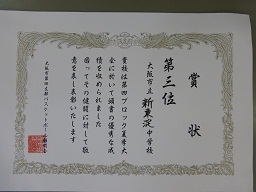 賞状
第三位
大阪市立 新東淀中学校
貴校は第四ブロック夏季大
会に於いて頭書の優秀な成
績を収められました
因ってその健闘に対して敬
意を表し表彰いたします
大阪市第四支部バスケットボール